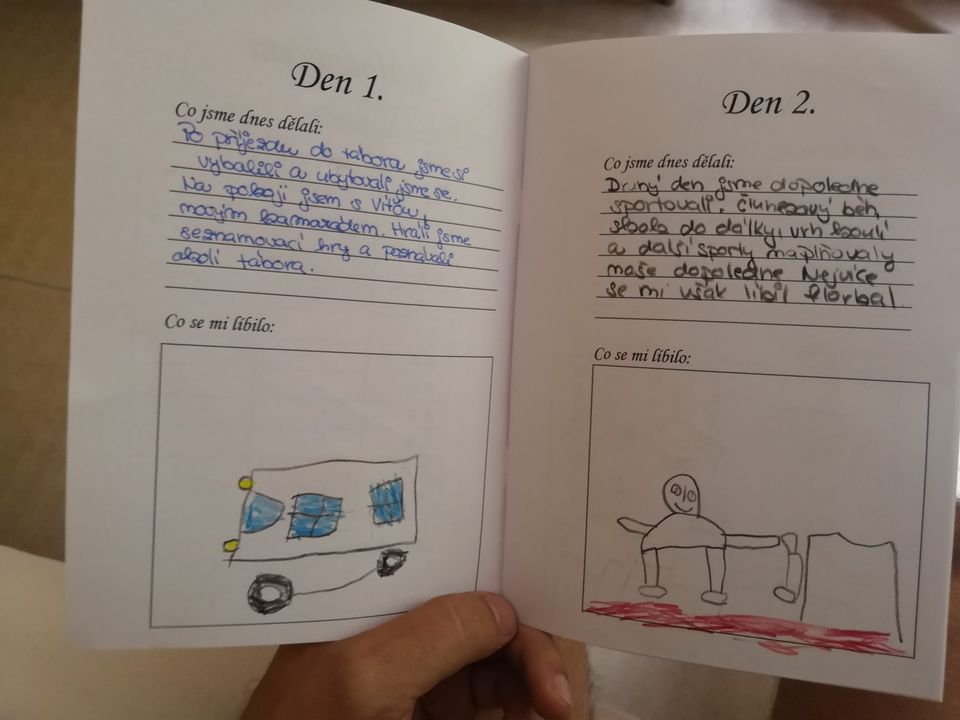 Den 1.
Co jsme dnes dělali:
Po příjezdu do tábora jsme si
vybalili a ubytovali jsme se.
Na pokoji jsem s Vítou,
novým kamarádem. Hráli jsme
seznamovací hry a poznávali
okolí tábora.
Co se mi líbilo:
Den 2.
Co jsme dnes dělali:
Druhý den jsme dopoledne
sportovali. Člunkový běh,
skok do dálky, vrh koulí
a další sporty naplňovaly
naše dopoledne Nejvíce
se mi však líbil florbal
Co se mi líbilo: